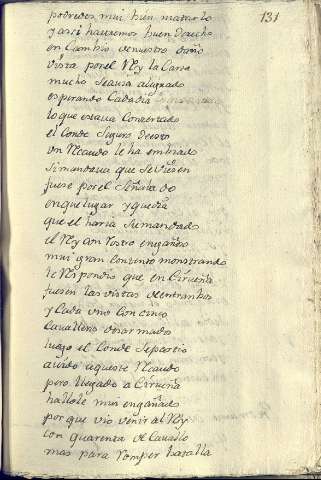 131
podredes mui bien matarlo
y assi hauremos buen derecho
en cambio de nuestro daño
vista por el Rey la Carta
mucho se auia alegrado
esperando Cada dia
lo que estaua Concertado
el Conde seguro desto
Un Recaudo le ha embiado
Si mandaua que se viesen
fuese por el Señalado
en que lugar y que dia
que el haria su mandado
el Rey con rostro engañoso
mui gran contento monstrando
le Respondio que en Cirueña
fuesen las vistas de entranbos
y Cada uno con cinco
Caualleros desarmados
luego el Conde se partio
auido aqueste Recaudo
pero llegado a Cirueña
hallose mui engañado
por que vio venir al Rey
con quarenta de Cauallo
mas para romper batalla